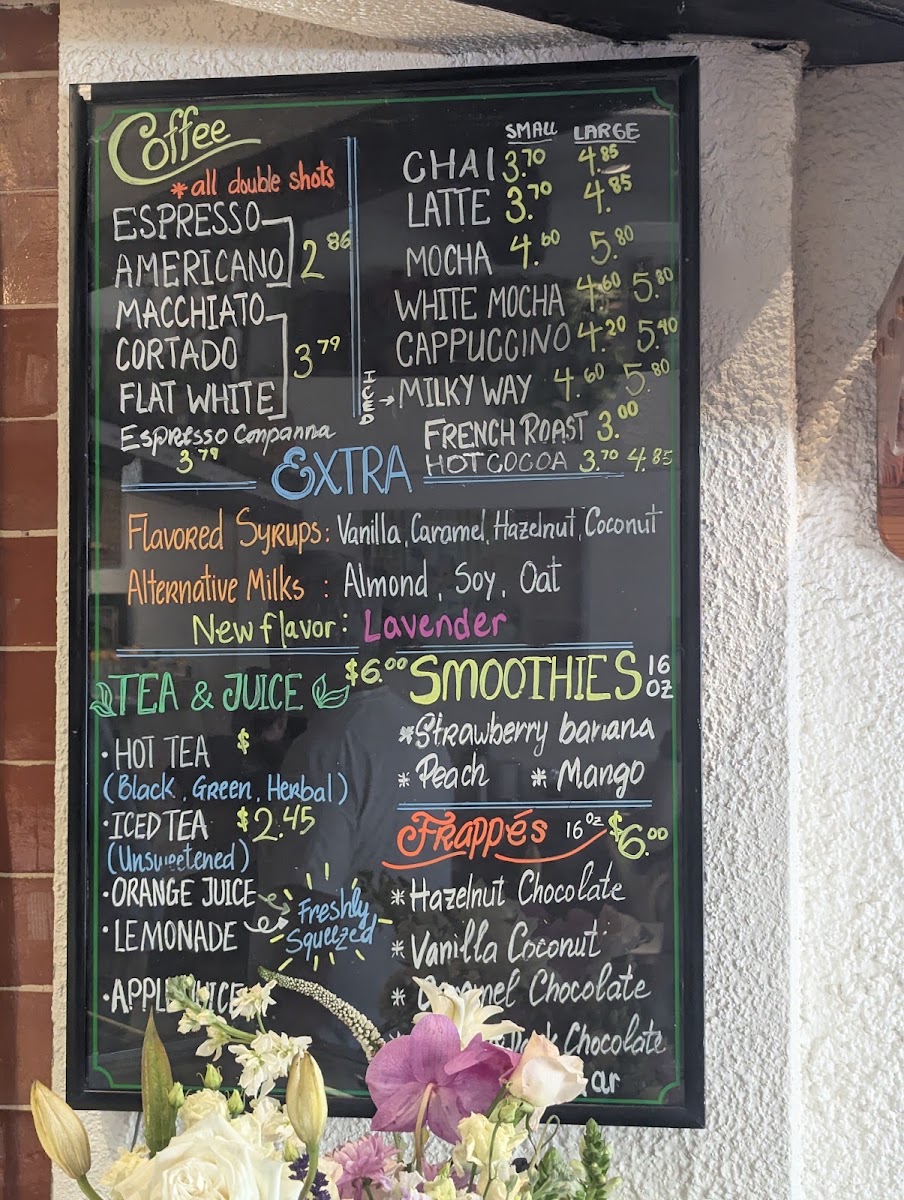 Coffee
*all double shots
ESPRESSO
AMERICANO 2.86
MACCHIATO
CORTADO 3.79
FLAT WHITE
Espresso Conpanna
3.79
SMALL LARGE
CHAI 3.70 4.85
LATTE 3.70 4.85
MOCHA 4.60 5.80
WHITE MOCHA 4.60 5.80
CAPPUCCINO 4.20 5.40
MILKY WAY 4.60 5.80
FRENCH ROAST 3.00
HOT COCOA 3.70 4.85
EXTRA
Flavored Syrups: Vanilla, Caramel, Hazelnut, Coconut
Alternative Milks : Almond, Soy, Oat
New flavor: Lavender
TEA & JUICE
• HOT TEA $
(Black, Green, Herbal)
• ICED TEA $2.45
(Unsweetened)
• ORANGE JUICE
• LEMONADE
Freshly
Squeezed
• APPLE JUICE
$6.00 SMOOTHIES 16 OZ
*Strawberry banana
* Peach * Mango
Frappés 16 oz $6.00
* Hazelnut Chocolate
* Vanilla Coconut
* Caramel Chocolate
Dark Chocolate